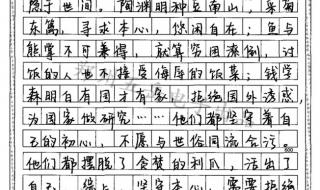 隐于世间。陶渊明种豆南山，采菊
东篱，寻求本心，悠闲自在；鱼与
能掌不可兼得，就算穷困潦倒，讨
饭的人也不接受侮辱的饭菜；钱学
森明白有国才有家，拒绝国外诱惑，
为国家做研究……他们都坚守着自
己的初心，不愿与世俗同流合污。
600
他们都摆脱了贪婪的利爪，活出了
自己。综上，坚守本心，需要拒绝